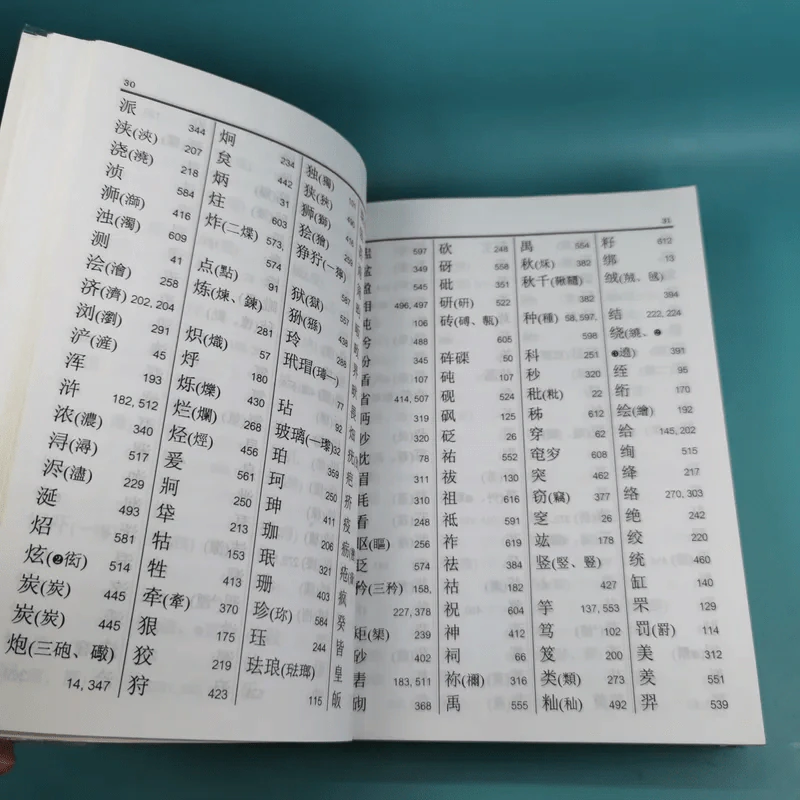 30
派 344
浃(浹) 207
浇(澆) 218
浈 584
浉(溮) 416
浊(濁) 609
测 41
浍(澮) 258
济(濟) 202, 204
浏(瀏) 291
浐(滻) 45
浑 193
浒 182, 512
浓(濃) 340
浔(潯) 517
浕(濜) 229
涎 493
炤 581
炫(❷衒) 514
炭(炭) 445
炭(炭) 445
炮(三砲、礮) 14, 347
炯 234
炱 442
炳 31
炷 603
炸(二煠) 573, 574
点(點) 91
炼(煉、鍊) 281
炽(熾) 57
烀 180
烁(爍) 430
烂(爛) 268
烃(烴) 456
爰 561
牁 250
牮 213
牯 153
牲 413
牵(牽) 370
狠 175
狡 219
狩 423
独(獨)
狭(狹)
狮(獅)
狯(獪)
狰狞(一獰)
狱(獄)
狲(猻)
玲
玳瑁(瑇一)
玷 92
玻璃(一瓈) 32
珀 359
珂 250
珅 411
珈 206
珉 321
珊 403
珍(珎) 584
珏 244
珐琅(琺瑯) 115
疫
疯
癸
皆
皇
皈
31
597
349
559
496, 497
106
488
115
414, 507
319
320
78
311
311
246
眍(瞘) 256
眨 574
矜(三矜) 158, 227, 378
矩(榘) 239
砂 402
砉 183, 511
砌 368
砍 248
砑 558
砒 351
研(研) 522
砖(磚、甎) 605
砗磲 50
砘 107
砚 524
砜 125
砭 26
祐 552
祓 130
祖 616
祗 591
祚 619
祛 384
祜 182
祝 604
神 412
祠 66
祢(禰) 316
禹 555
禺 554
秋(秌) 382
秋千(鞦韆) 382
种(種) 58, 597, 598
科 251
秒 320
秕(粃) 22
秭 612
穿 62
窀穸 608
突 442
窃(竊) 377
窆 26
竑 177
竖(竪、豎) 427
竽 137, 553
笃 102
笈 200
类(類) 273
籼(秈) 492
籽 612
绑 13
绒(羢、毧) 394
结 222, 224
绕(繞、❷❸遶) 391
绖 95
绗 170
绘(繪) 192
给 145, 202
绚 515
绛 217
络 270, 303
绝 242
绞 220
统 460
缸 140
罘 129
罚(罸) 114
美 312
羑 551
羿 539